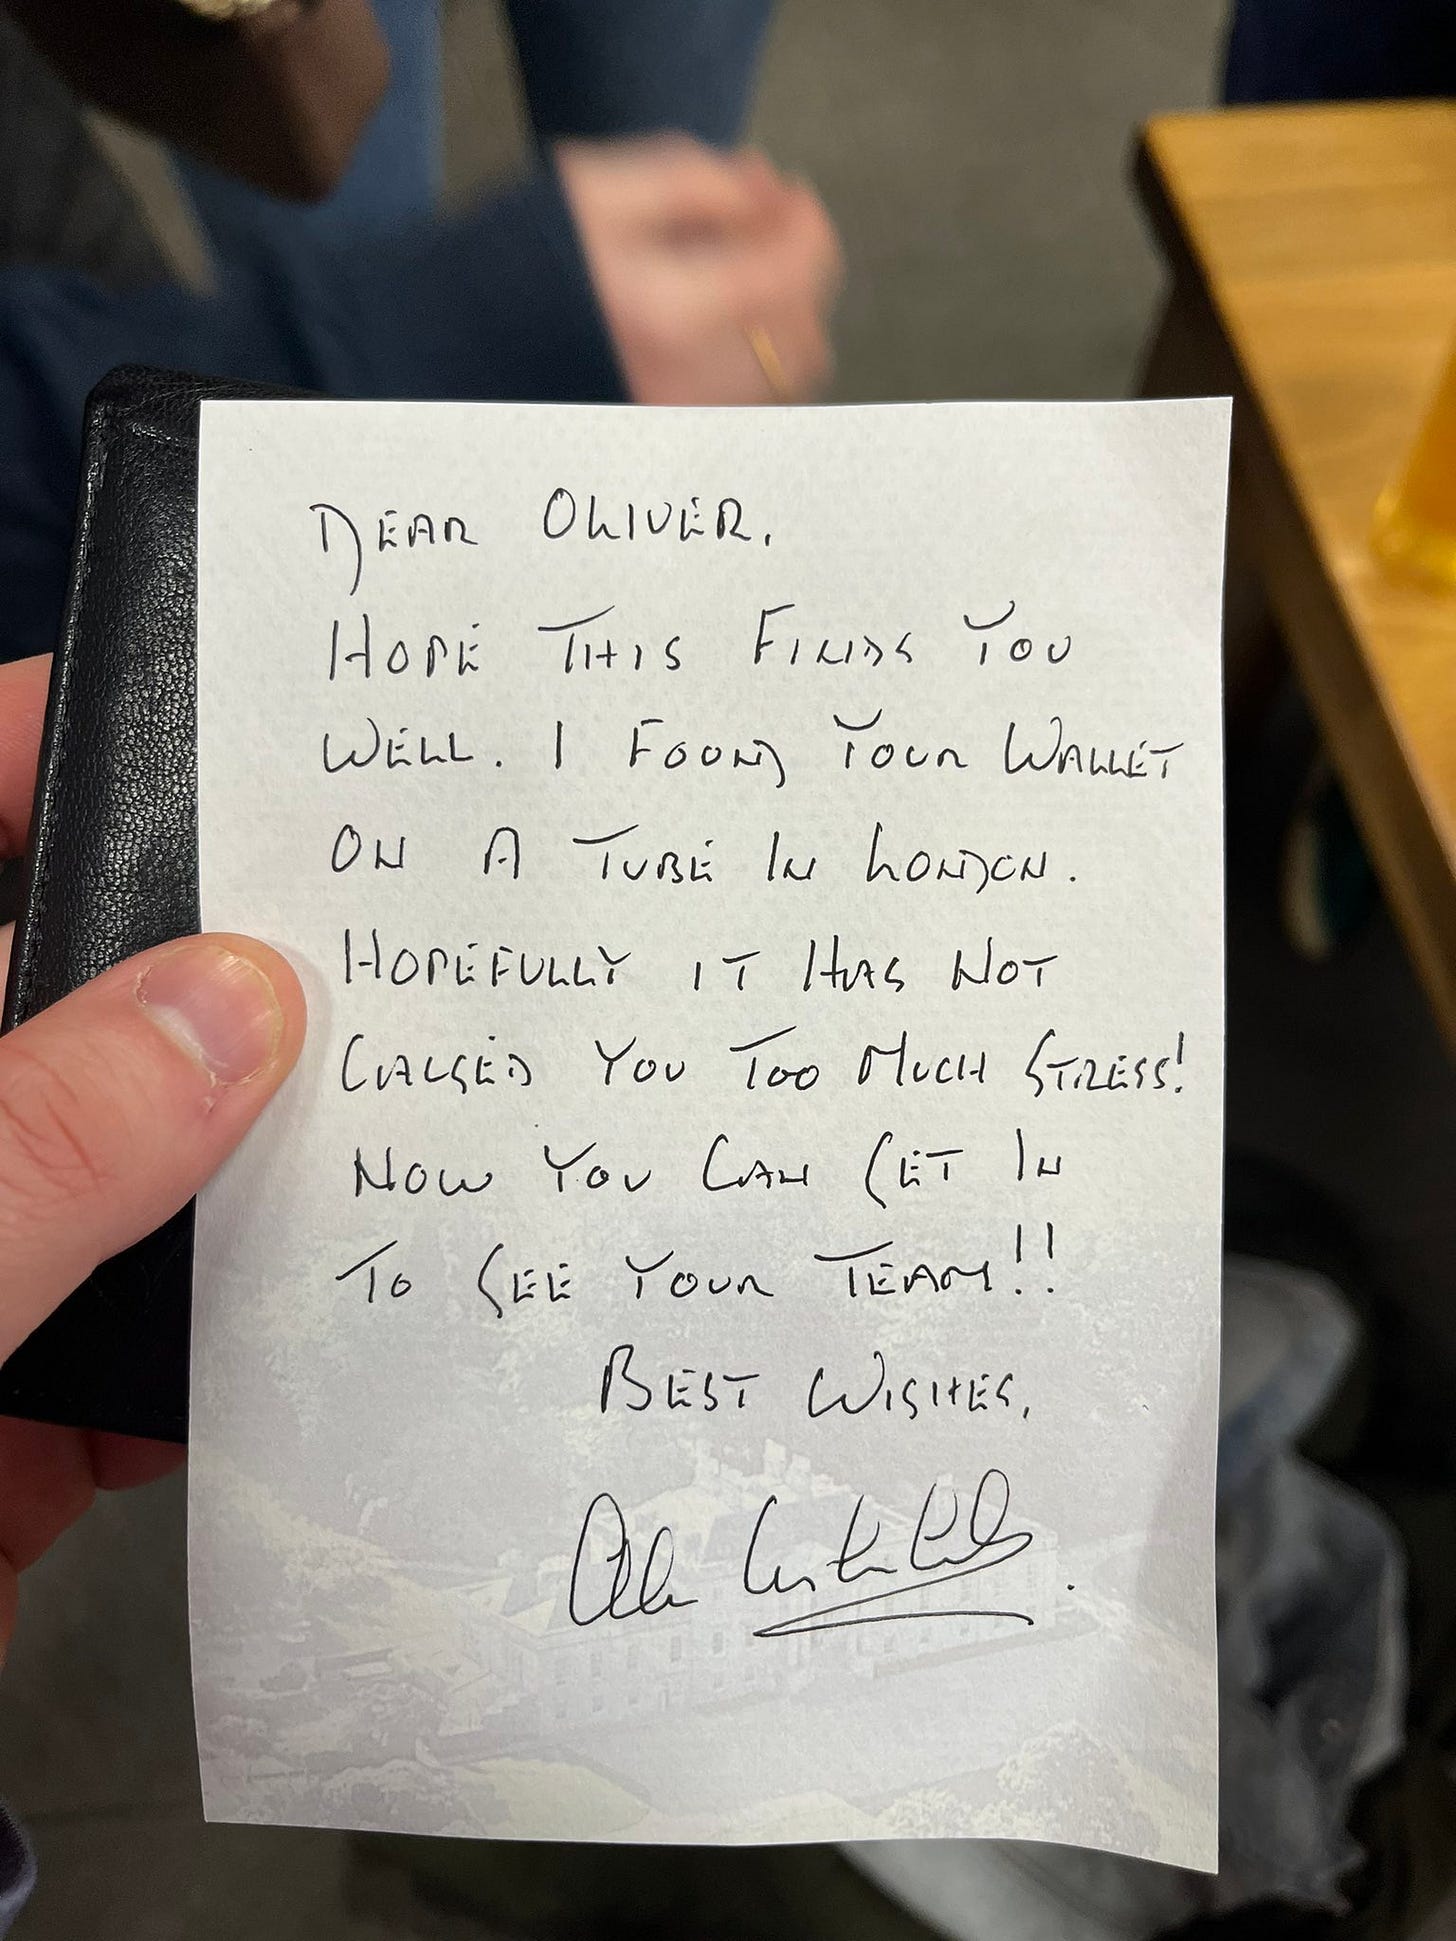 DEAR OLIVER,
HOPE THIS FINDS YOU
WELL. I FOUND YOUR WALLET
ON A TUBE IN LONDON.
HOPEFULLY IT HAS NOT
CAUSED YOU TOO MUCH STRESS!
NOW YOU CAN GET IN
TO SEE YOUR TEAM!!
BEST WISHES,